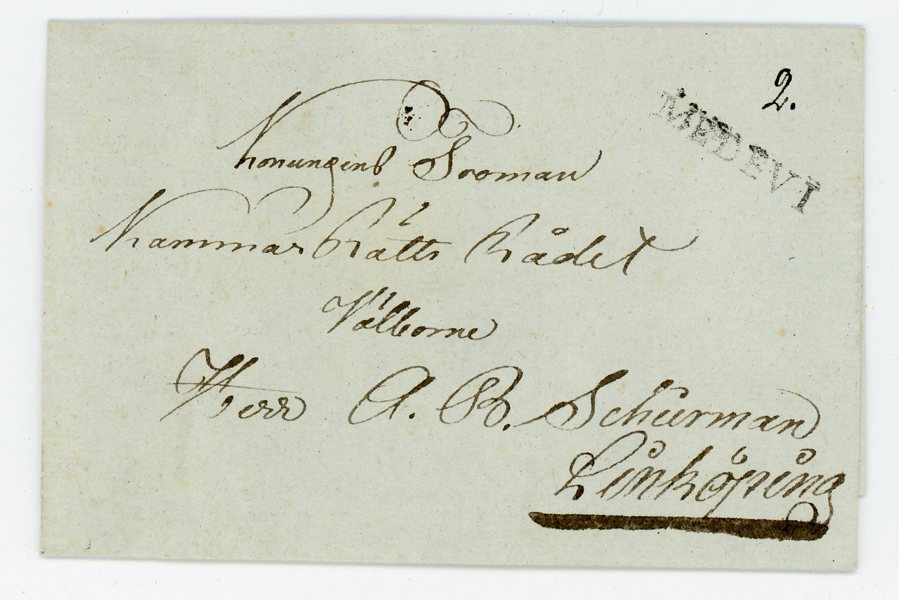 2.
MEDEVI
Konungens Troman
Kammar Rätts Rådet
Välborne
Herr A. B. Schürman
Linköping